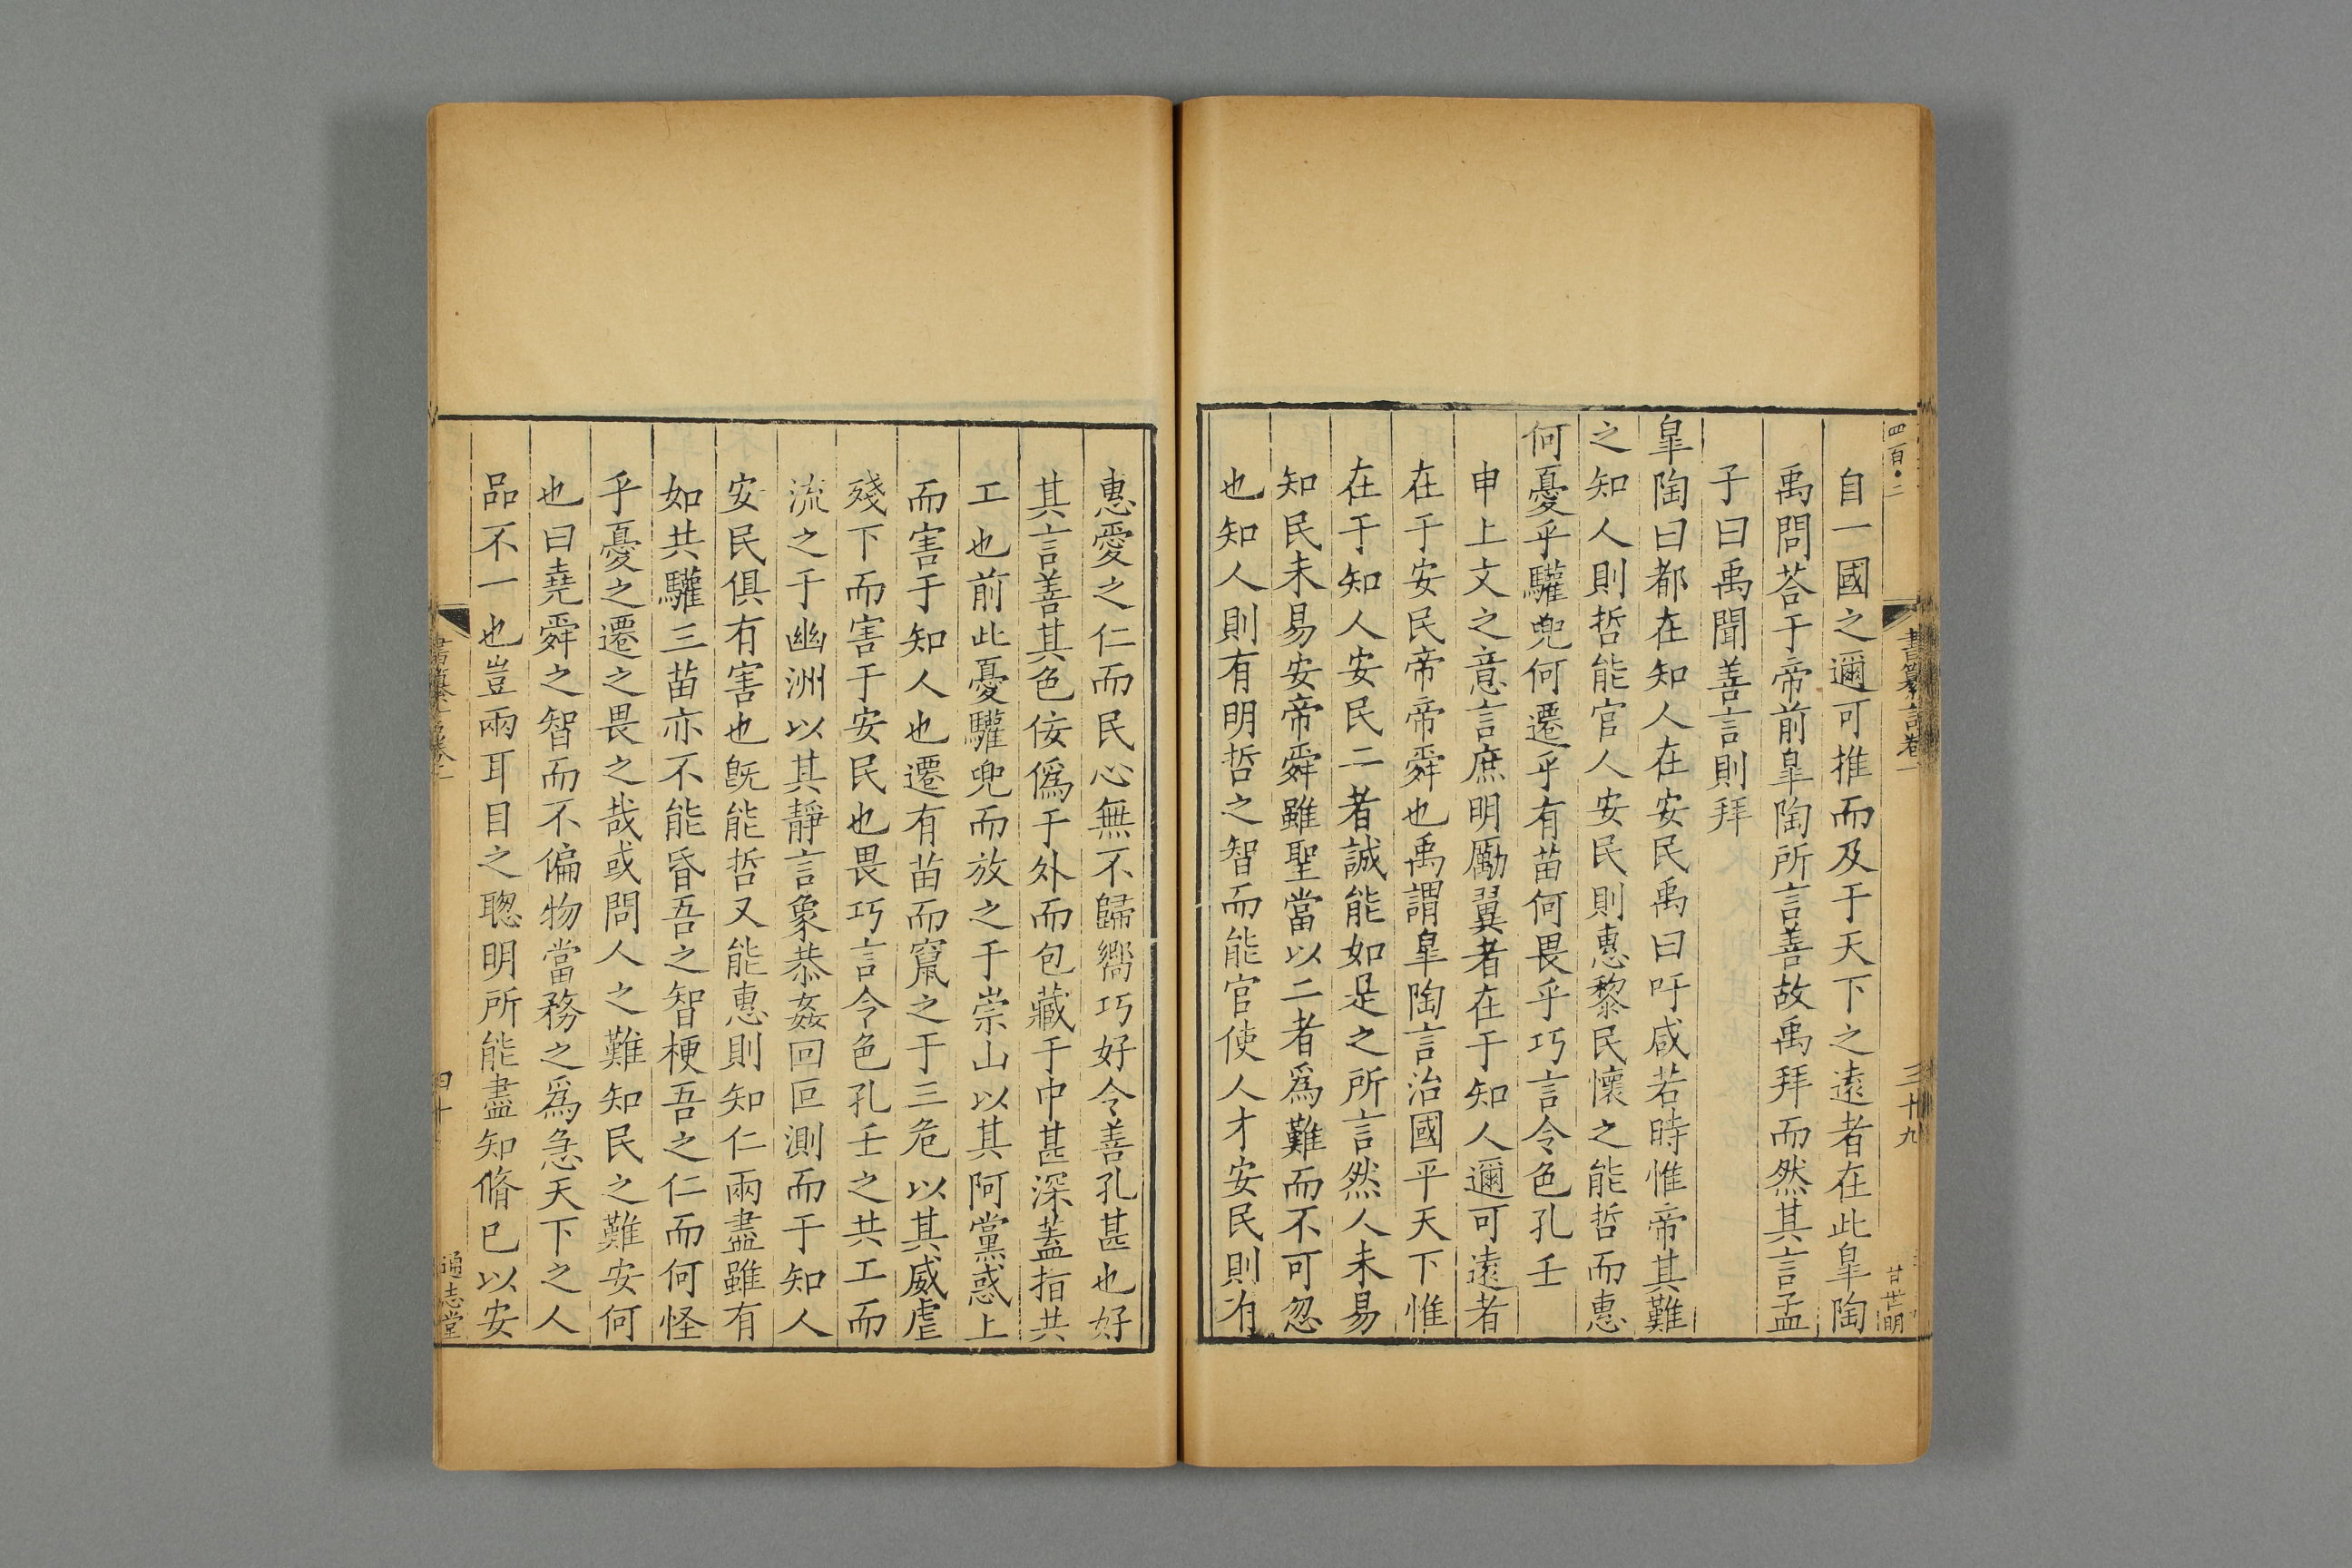 四百○二
書纂言卷一
三十九
甘世明
自一國之邇可推而及于天下之遠者在此皐陶
禹問荅于帝前皐陶所言善故禹拜而然其言孟
子曰禹聞善言則拜
皐陶曰都在知人在安民禹曰吁咸若時惟帝其難
之知人則哲能官人安民則惠黎民懷之能哲而惠
何憂乎驩兜何遷乎有苗何畏乎巧言令色孔壬
申上文之意言庶明勵翼者在于知人邇可遠者
在于安民帝帝舜也禹謂皐陶言治國平天下惟
在于知人安民二者誠能如足之所言然人未易
知民未易安帝舜雖聖當以二者爲難而不可忽
也知人則有明哲之智而能官使人才安民則有
惠愛之仁而民心無不歸嚮巧好令善孔甚也好
其言善其色佞僞于外而包藏于中甚深蓋指共
工也前此憂驩兜而放之于崇山以其阿黨惑上
而害于知人也遷有苗而竄之于三危以其威虐
殘下而害于安民也畏巧言令色孔壬之共工而
流之于幽洲以其靜言象恭姦回叵測而于知人
安民俱有害也旣能哲又能惠則知仁兩盡雖有
如共驩三苗亦不能昏吾之智梗吾之仁而何怪
乎憂之遷之畏之哉或問人之難知民之難安何
也曰堯舜之智而不偏物當務之爲急天下之人
品不一也豈兩耳目之聰明所能盡知脩已以安
書纂言卷一
四十
通志堂